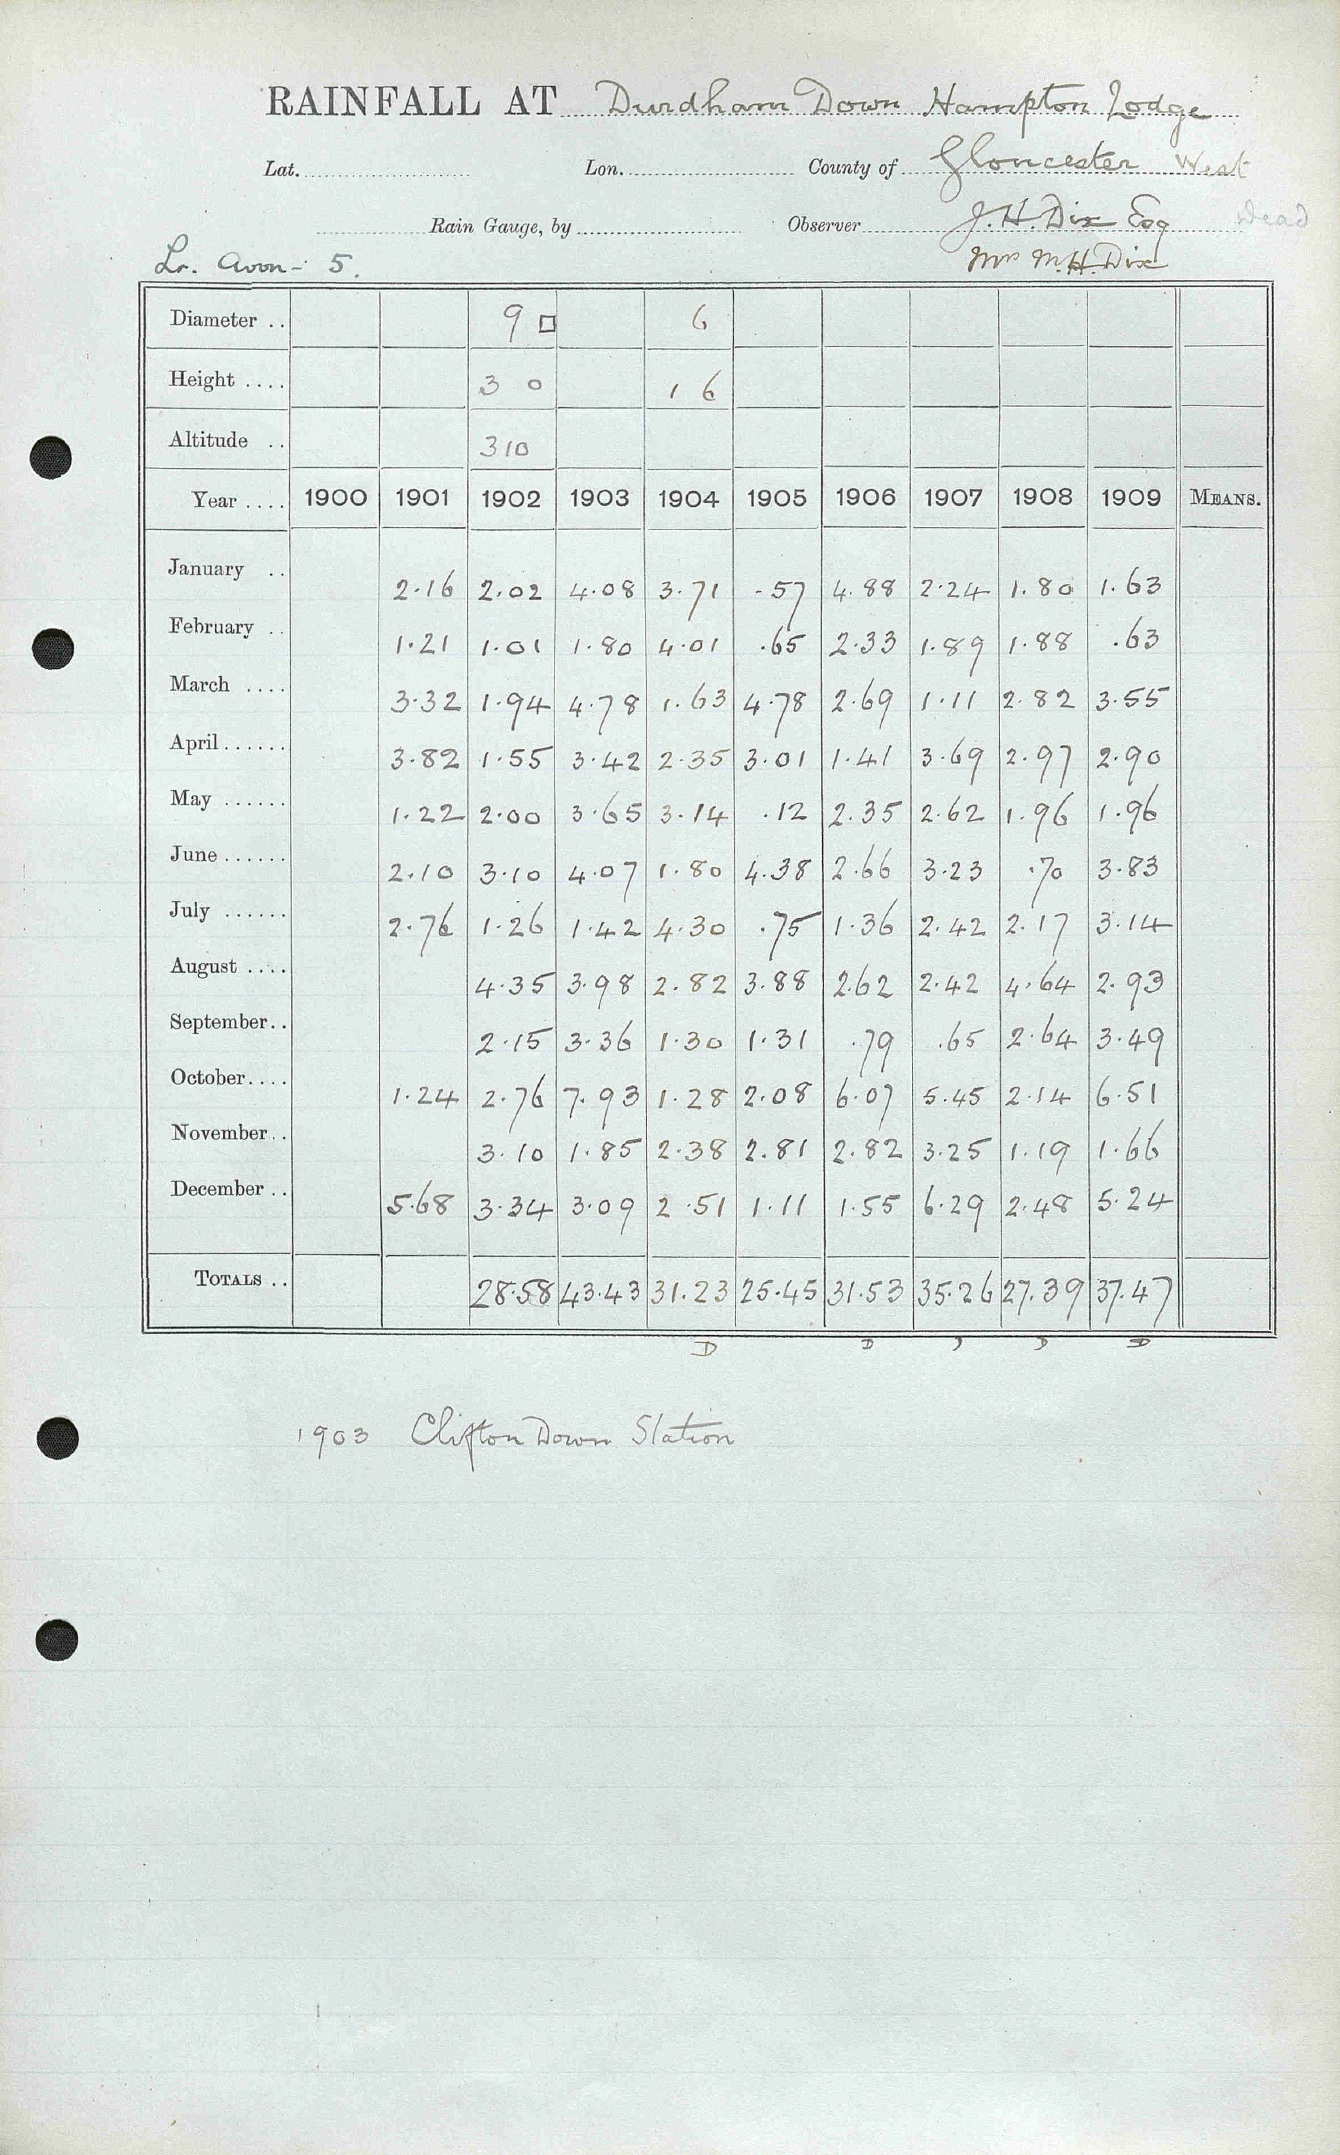 RAINFALL AT Durdham Down Hampton Lodge
Lat. Lon. County of Gloucester West
Rain Gauge, by Observer J. H. Dix Esq Dead
Lr. Avon - 5. Mrs M. H. Dix
Diameter .. 9 □ 6
Height .... 3 0 1 6
Altitude .. 310
Year .... 1900 1901 1902 1903 1904 1905 1906 1907 1908 1909 MEANS.
January .. 2.16 2.02 4.08 3.71 .57 4.88 2.24 1.80 1.63
February .. 1.21 1.01 1.80 4.01 .65 2.33 1.89 1.88 .63
March .... 3.32 1.94 4.78 1.63 4.78 2.69 1.11 2.82 3.55
April ...... 3.82 1.55 3.42 2.35 3.01 1.41 3.69 2.97 2.90
May ...... 1.22 2.00 3.65 3.14 .12 2.35 2.62 1.96 1.96
June ...... 2.10 3.10 4.07 1.80 4.38 2.66 3.23 .70 3.83
July ...... 2.76 1.26 1.42 4.30 .75 1.36 2.42 2.17 3.14
August .... 4.35 3.98 2.82 3.88 2.62 2.42 4.64 2.93
September.. 2.15 3.36 1.30 1.31 .79 .65 2.64 3.49
October.... 1.24 2.76 7.93 1.28 2.08 6.07 5.45 2.14 6.51
November.. 3.10 1.85 2.38 2.81 2.82 3.25 1.19 1.66
December .. 5.68 3.34 3.09 2.51 1.11 1.55 6.29 2.48 5.24
TOTALS .. 28.58 43.43 31.23 25.45 31.53 35.26 27.39 37.47
D D D D D
1903 Clifton Down Station